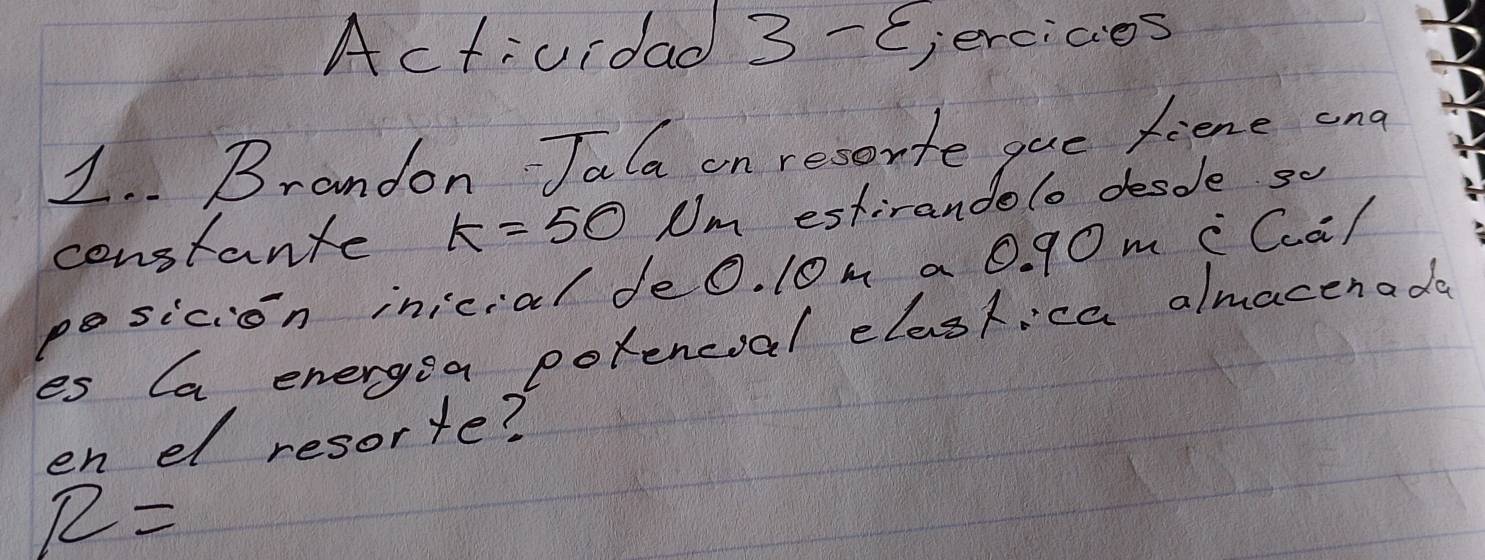 Actividad 3 - Ejercicios
1.. Brandon Jala un resorte que tiene una
constante K = 50 Nm estirandolo desde su
posición inicial de 0.10 m a 0.90 m ¿ Cuál
es la energia potencial elastica almacenada
en el resorte?
R =